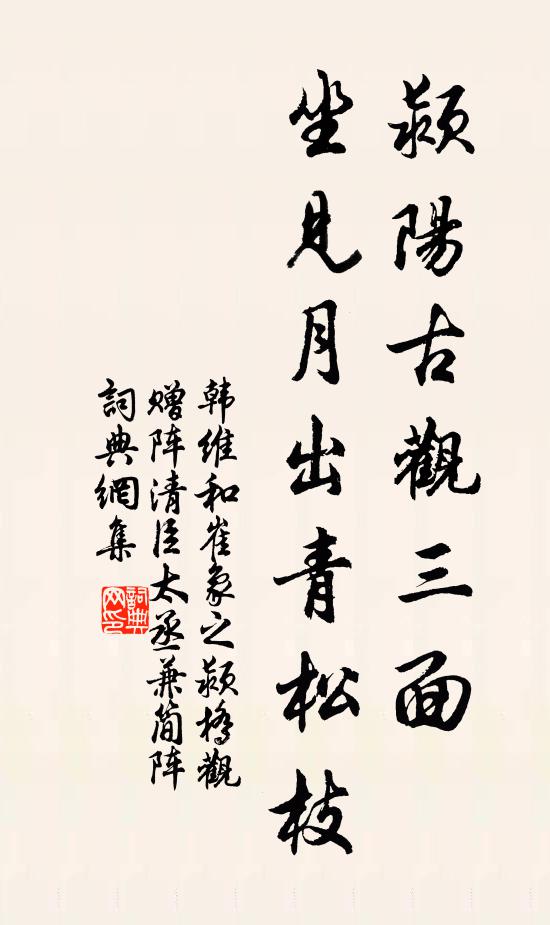 颍陽古觀三面
坐見月出青松枝
韩維和崔象之颍橋觀
赠阵清臣太丞兼简阵
詞典網集
詞典网印